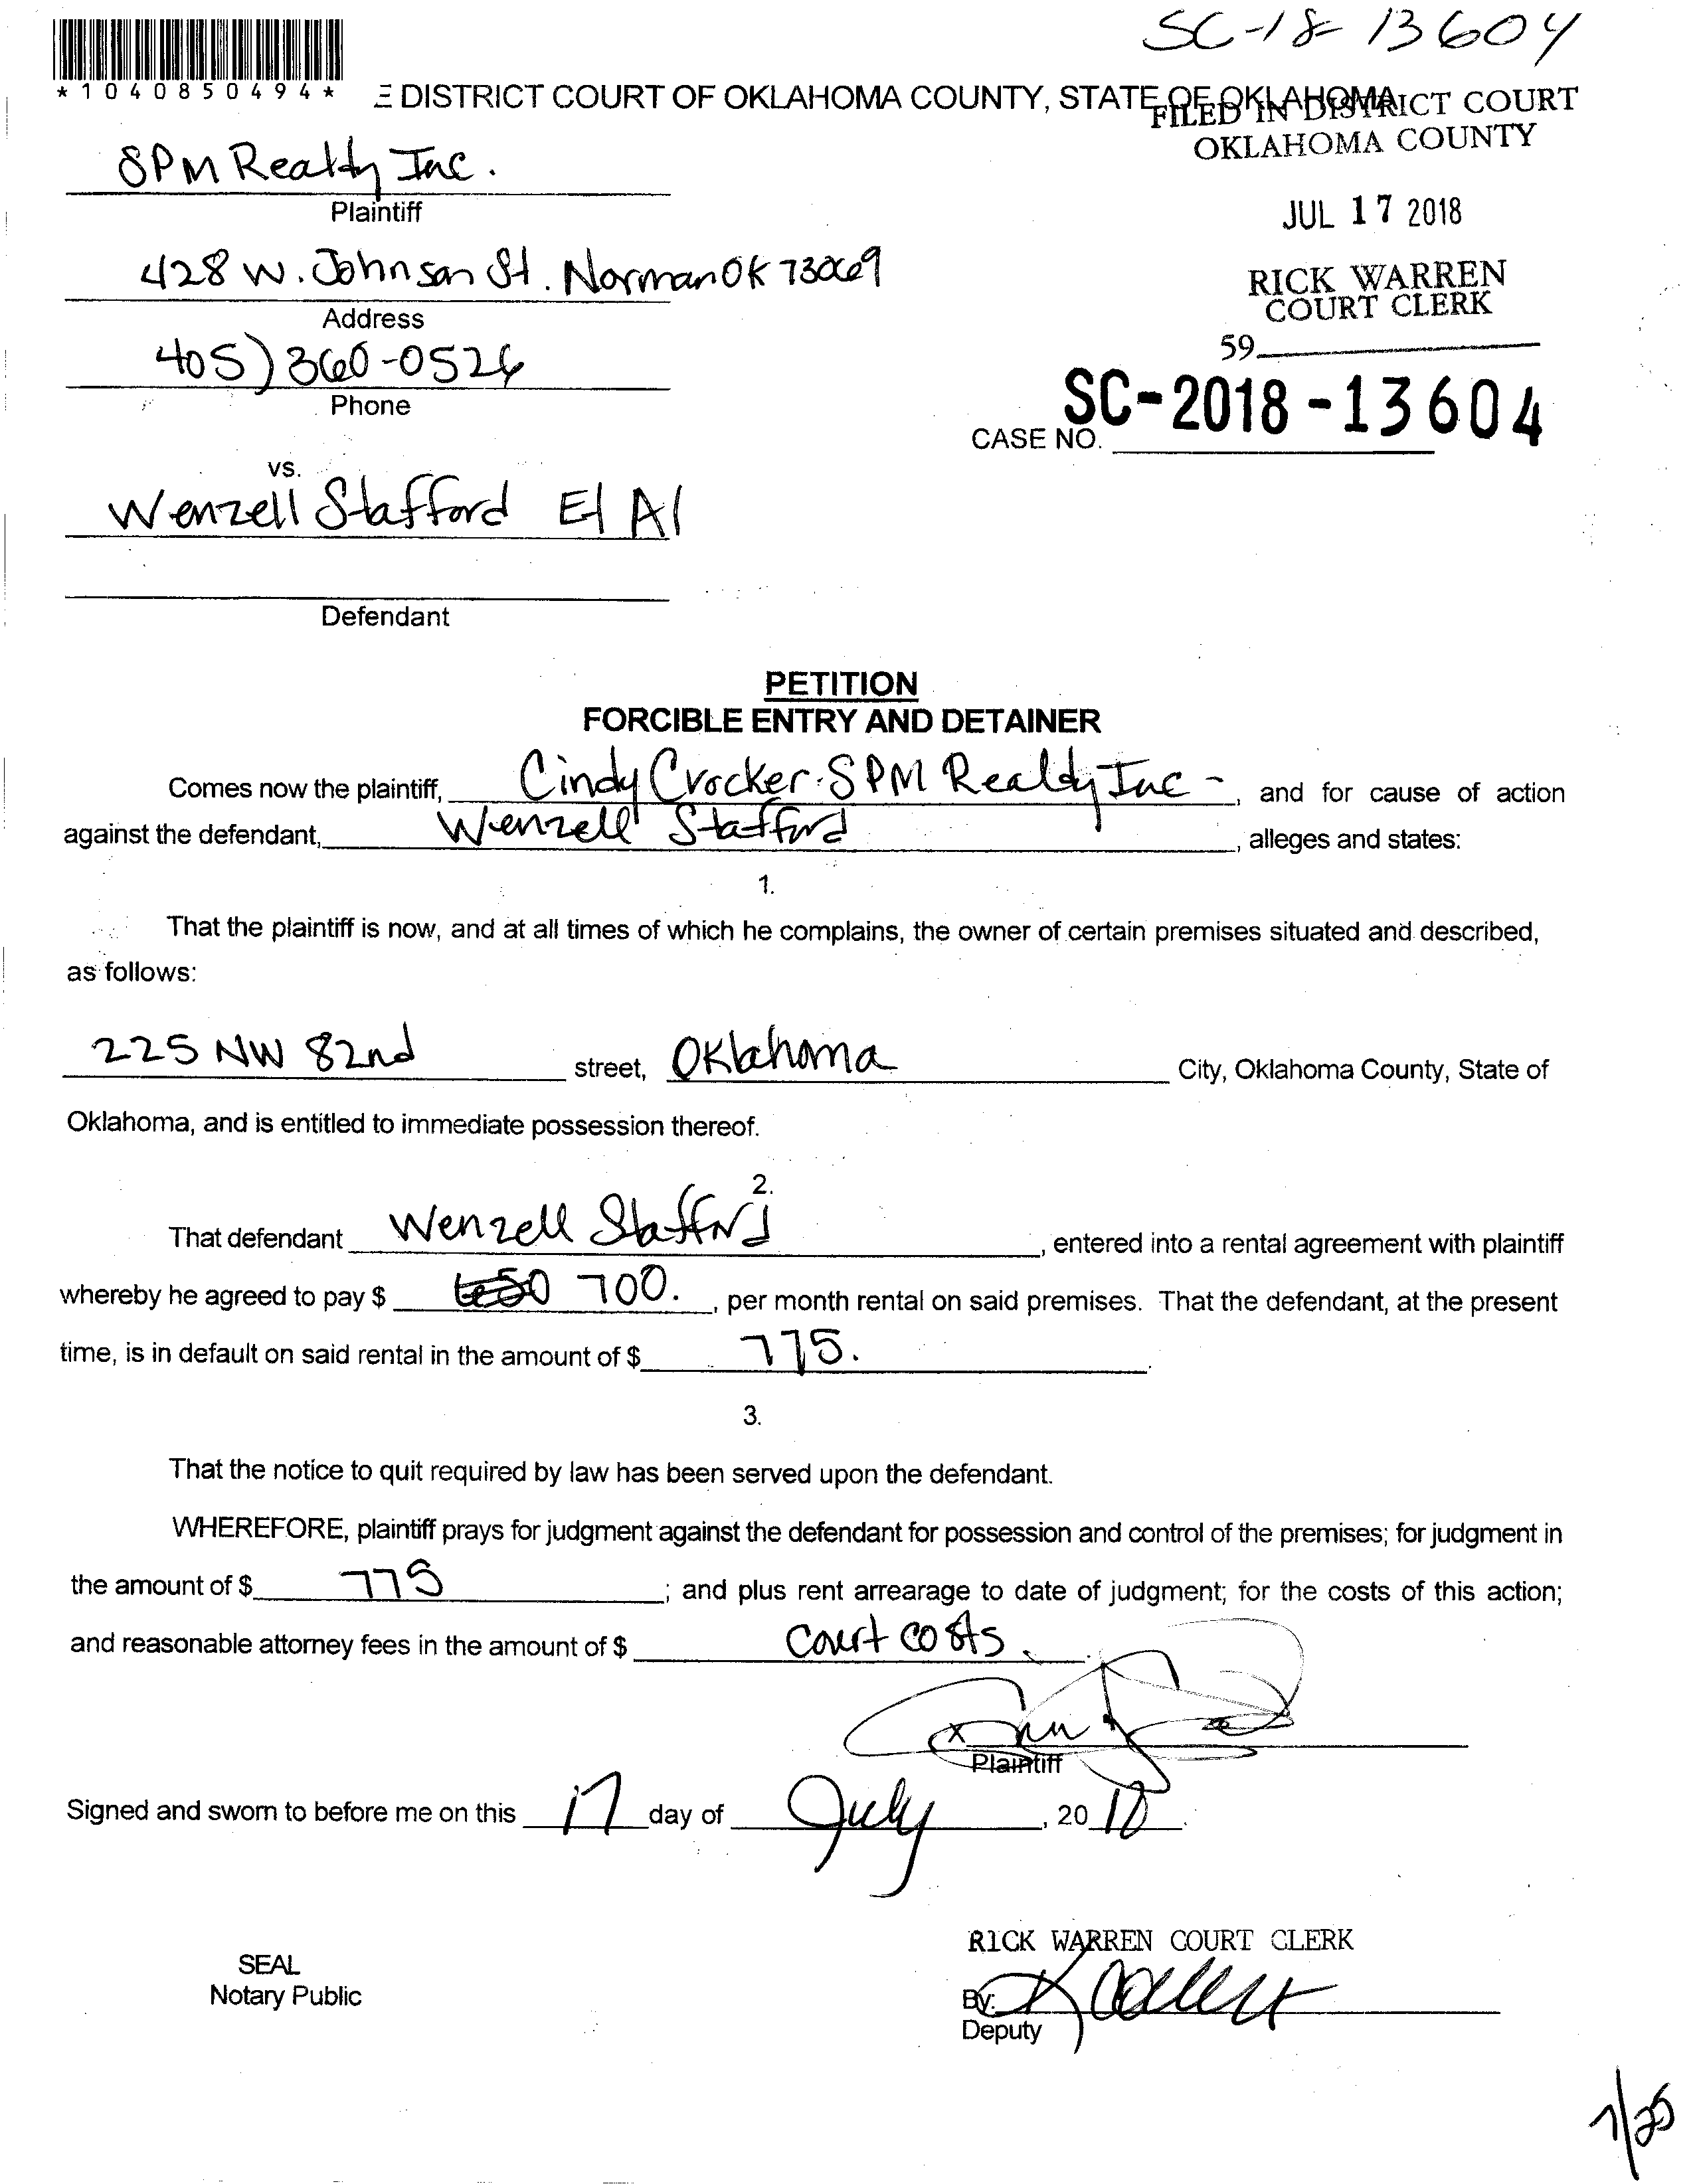 SC-18-13604
*1040850494*
E DISTRICT COURT OF OKLAHOMA COUNTY, STATE OF OKLAHOMA
FILED IN DISTRICT COURT
OKLAHOMA COUNTY
SPM Realty Inc.
Plaintiff
JUL 17 2018
428 W. Johnson St. Norman OK 73069
Address
RICK WARREN
COURT CLERK
405) 360-0526
Phone
59
SC-2018-13604
CASE NO.
vs.
Wenzell Stafford Et Al
Defendant
PETITION
FORCIBLE ENTRY AND DETAINER
Comes now the plaintiff, Cindy Crocker-SPM Realty Inc -, and for cause of action
against the defendant, Wenzell Stafford, alleges and states:
1.
That the plaintiff is now, and at all times of which he complains, the owner of certain premises situated and described,
as follows:
225 NW 82nd street, Oklahoma City, Oklahoma County, State of
Oklahoma, and is entitled to immediate possession thereof.
2.
That defendant Wenzell Stafford, entered into a rental agreement with plaintiff
whereby he agreed to pay $ 650 700., per month rental on said premises. That the defendant, at the present
time, is in default on said rental in the amount of $ 775.
3.
That the notice to quit required by law has been served upon the defendant.
WHEREFORE, plaintiff prays for judgment against the defendant for possession and control of the premises; for judgment in
the amount of $ 775; and plus rent arrearage to date of judgment; for the costs of this action;
and reasonable attorney fees in the amount of $ Court costs.
x
Plaintiff
Signed and sworn to before me on this 17 day of July, 2018.
RICK WARREN COURT CLERK
SEAL
Notary Public
By:
Deputy
7/25